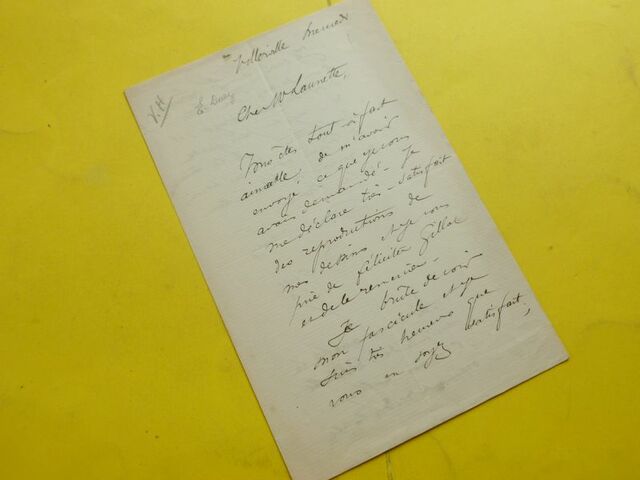 V.H
E. Duez
Villerville Mercredi
Cher Mr Launette,
Vous êtes tout à fait
aimable de m'avoir
envoyé ce que je vous
avais demandé. Je
me déclare très-satisfait
des reproductions de
mes dessins et je vous
prie de féliciter Gillot
et de le remercier -
Je brûle de voir
mon fascicule et je
suis très heureux que
vous en soyez satisfait,